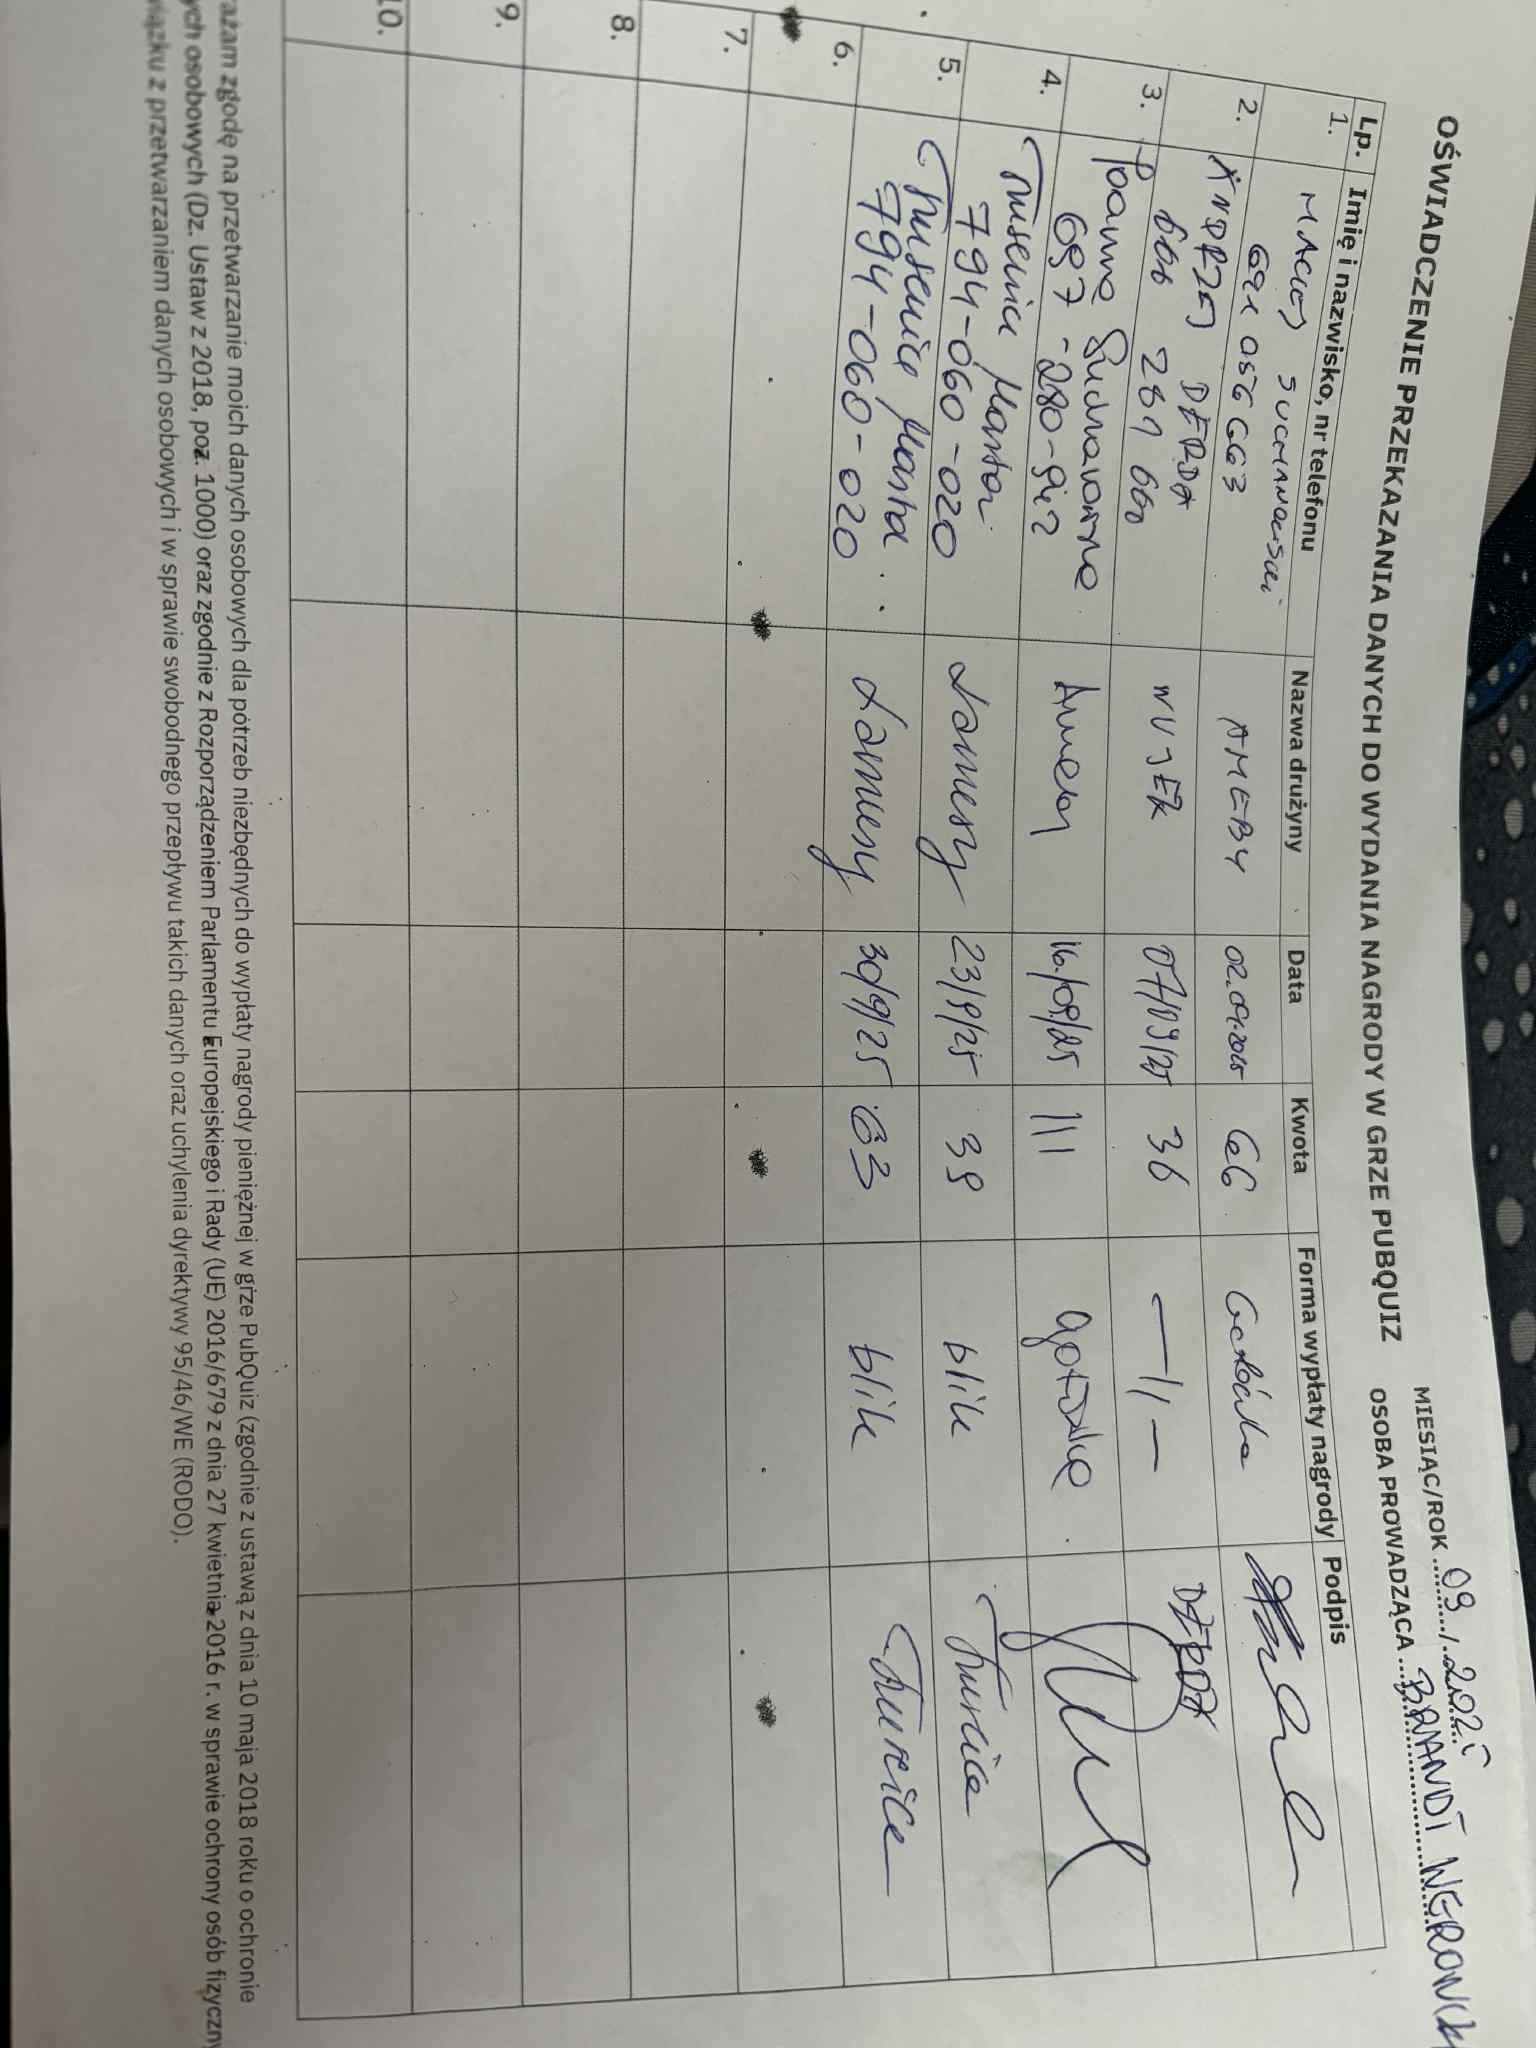 OŚWIADCZENIE PRZEKAZANIA DANYCH DO WYDANIA NAGRODY W GRZE PUBQUIZ
MIESIĄC/ROK 09 / 2025
OSOBA PROWADZĄCA BRANDT
Lp. Imię i nazwisko, nr telefonu Nazwa drużyny Data Kwota Forma wypłaty nagrody Podpis
1. MACIEJ SUCHANOWSKI
691 056 663 AMEBY 02.09.2025 66 Gotówka
2. ANDRZEJ DERDA
606 281 660 NUJEK 07/09/25 36 —//— DERDA
3. Joanna
697-280-942 16/09/25 111 gotówka
4. Marta
794-060-020 Lamusy 23/9/25 39 blik
5. Marta
794-060-020 Lamusy 30/9/25 63 blik
6.
7.
8.
9.
10.
ażam zgodę na przetwarzanie moich danych osobowych dla potrzeb niezbędnych do wypłaty nagrody pieniężnej w grze PubQuiz (zgodnie z ustawą z dnia 10 maja 2018 roku o ochronie
ych osobowych (Dz. Ustaw z 2018, poz. 1000) oraz zgodnie z Rozporządzeniem Parlamentu Europejskiego i Rady (UE) 2016/679 z dnia 27 kwietnia 2016 r. w sprawie ochrony osób fizyczny
wiązku z przetwarzaniem danych osobowych i w sprawie swobodnego przepływu takich danych oraz uchylenia dyrektywy 95/46/WE (RODO).